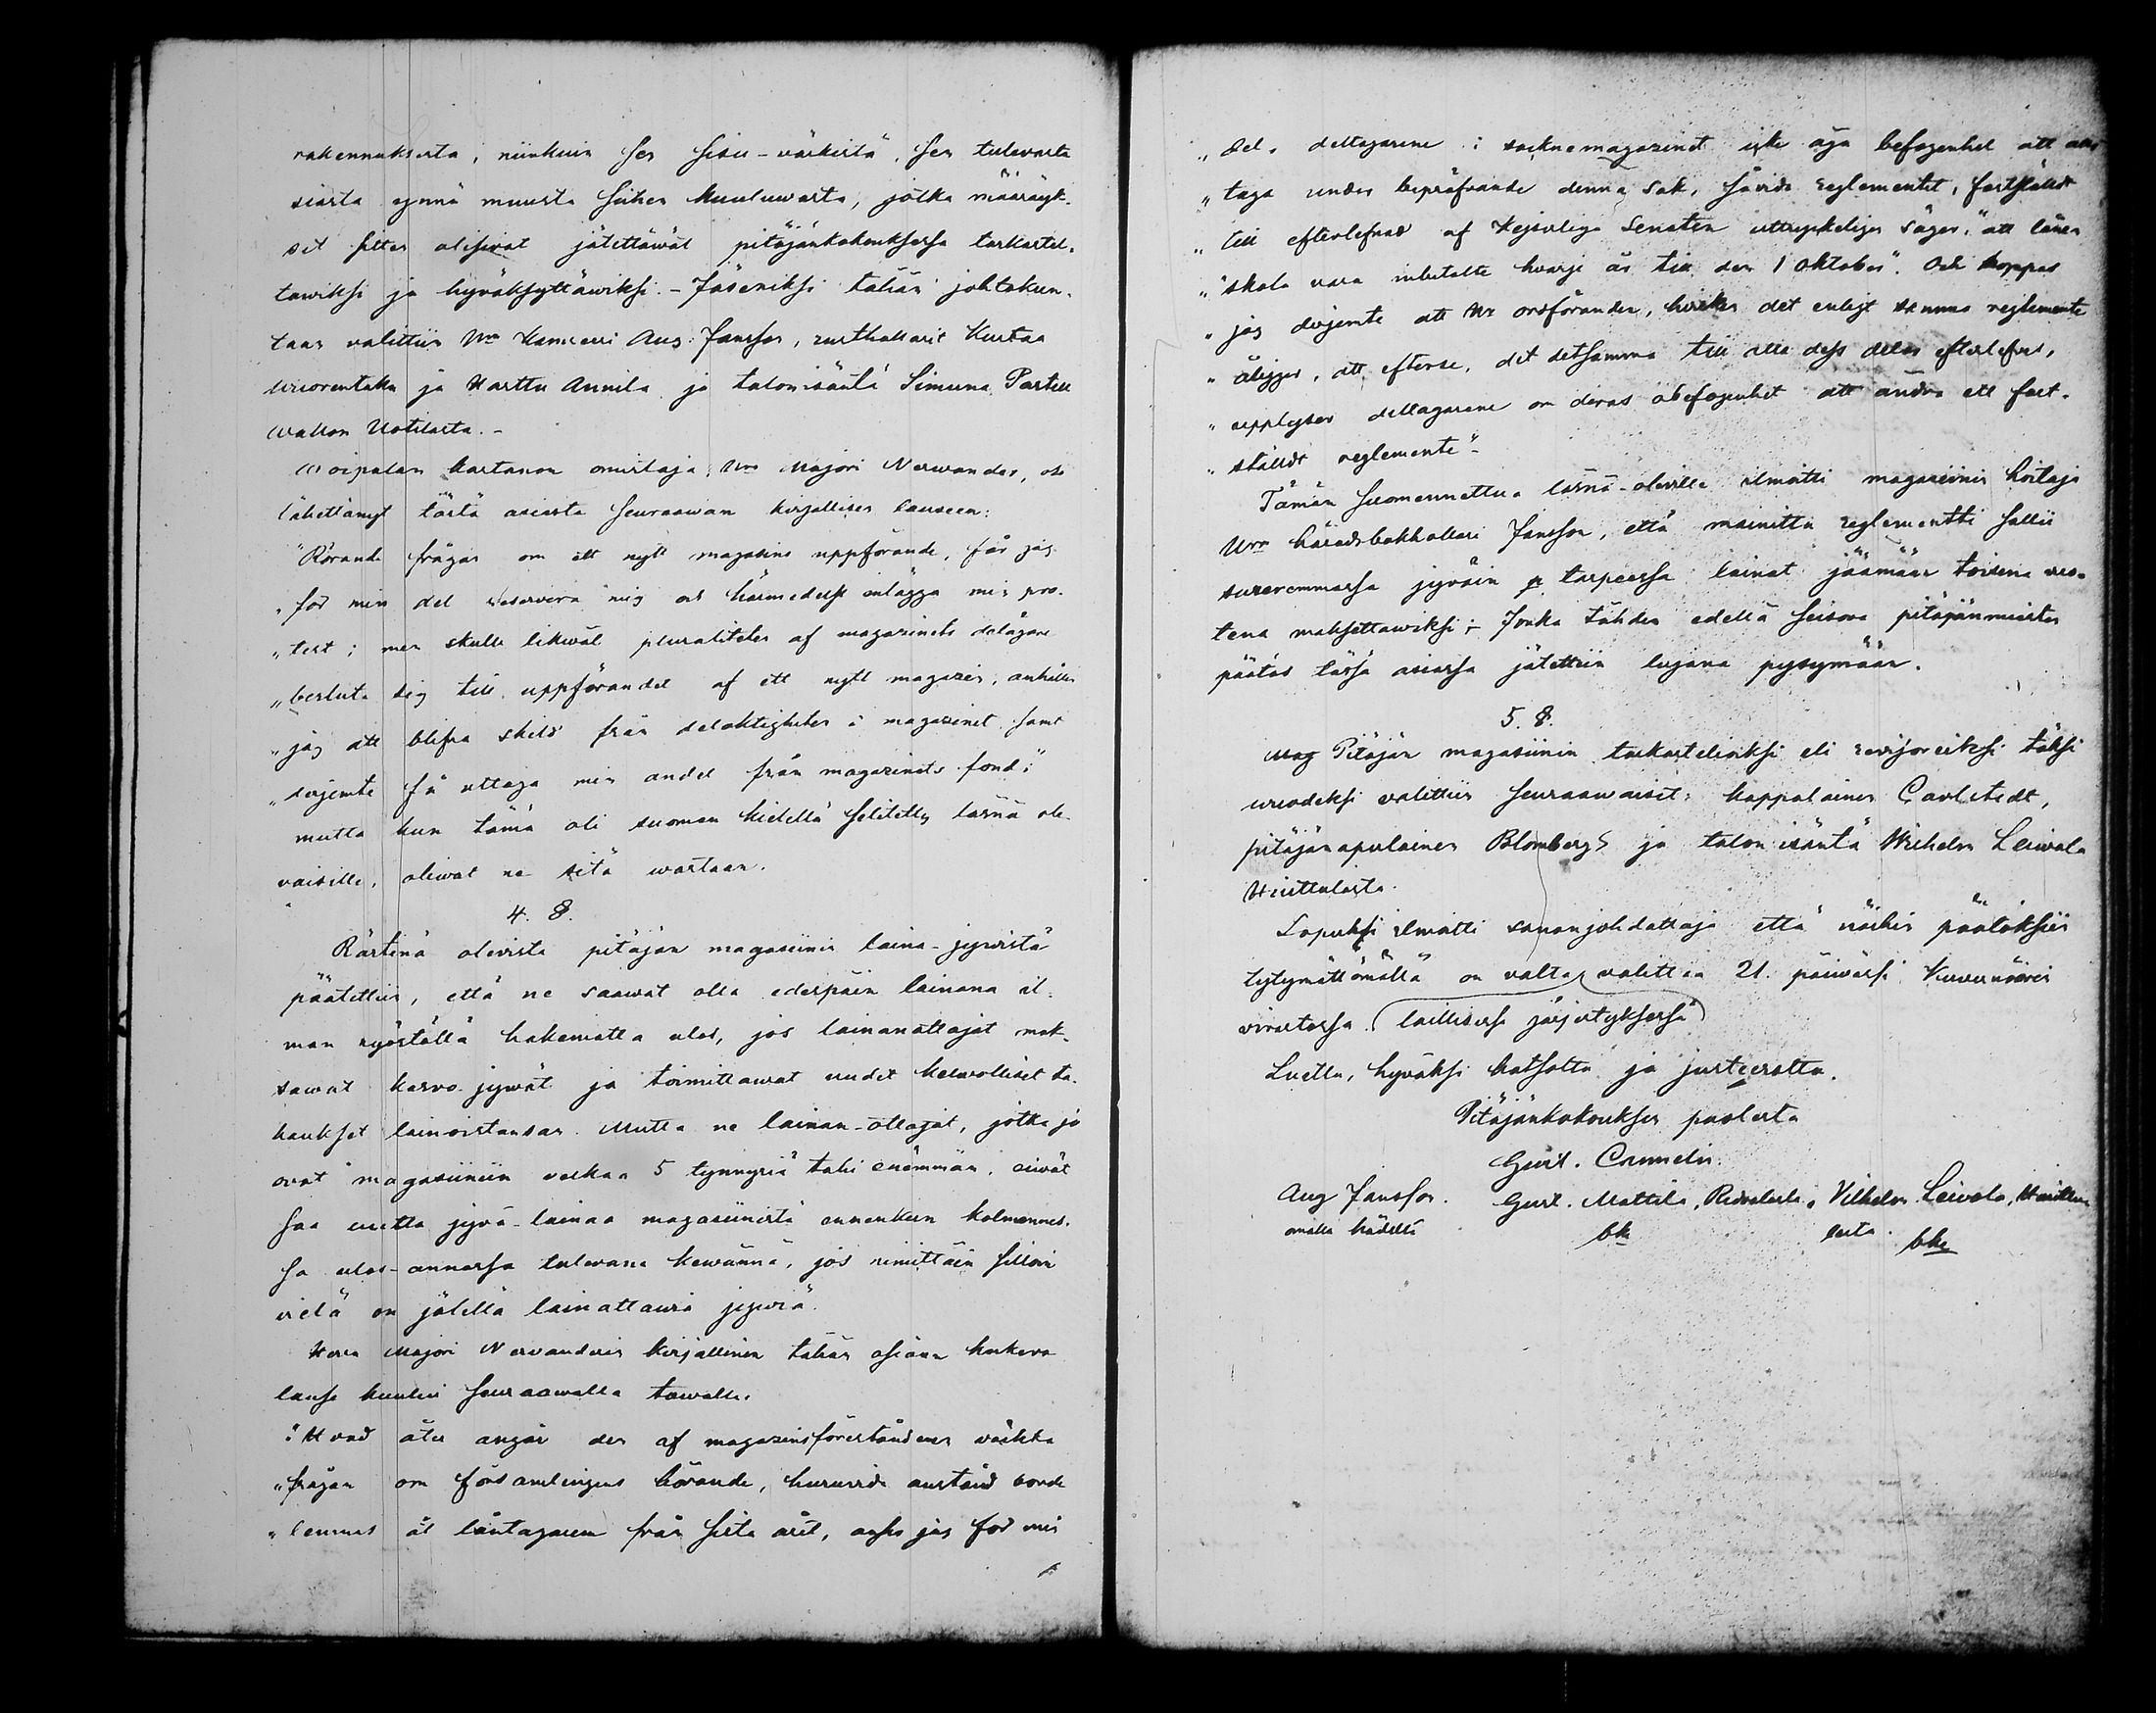 rakennuksesta, niinkuin sen sisu-värkistä, sen tulevasta
siasta ynnä muusta siihen kuuluwasta, jotka määräyk-
set sitten olisivat jätettäwät pitäjänkokouksessa tarkastel-
tawiksi ja hyväksyttäwiksi. - Jäseniksi tähän johtokun-
taan valittiin Hra Kamreri Aug. Jansson, rusthollarit Kustaa
Wuorentaka ja Harttu Annila ja talonisäntä Simuna Partu
wallon Uotilasta. -
Woipalan kartanon omistaja, Hra Majori Nerwander, oli
lähettänyt tästä asiasta seuraawan kirjallisen lauseen:
"Rörande frågan om ett nytt magasins uppförande, får jag
"för min del reservera mig och härmedelst inlägga min pro-
"test; men skulle likwäl pluraliteten af magazinets delägare
"besluta sig till uppförandet af ett nytt magazin, anhåller
"jag att blifva skild från delaktigheten i magazinet samt
"derjemte få uttaga min andel från magazinets fond;"
mutta kun tämä oli suomen kielellä selitetty läsnä ole-
vaisille, oliwat ne sitä wastaan.
4. §.
Rästinä olevista pitäjän magasiinin laina-jywistä
päätettiin, että ne saawat olla edespäin lainana il-
man ryöstöllä hakematta ulos, jos lainanottajat mak-
sawat kasvo-jywät ja toimittawat uudet kelwolliset ta-
kaukset lainoistansa. Mutta ne lainan-ottajat, jotka jo
ovat magasiiniin velkaa 5 tynnyriä tahi enämmän, eiwät
saa uutta jyvä-lainaa magasiinista ennenkun kolmannes-
sa ulos-annossa tulevana kewännä, jos nimittäin silloin
vielä on jälellä lainattawia jywiä.
Herra Majori Nervanderin kirjallinen tähän asiaan koskeva
lause kuului seuraawalla tawalla.
"Hvad åter angår den af magazinsföreståndaren väckta
"frågan om församlingens hörande, huruvida anstånd borde
"lemnas åt låntagaren från sista året, anser jag för min
"del, deltagarene i socknemagazinet icke äga befogenhet att
"taga under bepröfvande denna sak, såvida reglementet, fastställdt
"till efterlefnad af Kejserliga Senaten uttryckeligen säger, "att lånen
"skola vara inbetalte hvarje år till den 1 Oktober". Och hoppas
"jag derjemte att Hr ordföranden, hvilken det enligt samma reglemente
"åligger, att efterse, det detsamma till alla dess delar efterlefves,
"upplyser deltagarene om deras obefogenhet att ändra ett fast-
"ställdt reglemente"-
Tämän suomennettua läsnä-oleville ilmoitti magasiinin hoitaja
Hrra häradsbokhollari Jansson, että mainittu reglementti sallii
suuremmassa jyväin tarpeessa lainat jäämään toisena vuo-
tena maksettawiksi; - Jonka tähden edellä seisova pitäjänmiesten
päätös tässä asiassa jätettiin lujana pysymään.
5. §.
Pitäjän magasiinin tarkastelioiksi eli revisoreiksi täksi
wuodeksi valittiin seuraawaiset: kappalainen Carlstedt,
pitäjänapulainen Blomberg ja talon isäntä Wilhelm Leiwola
Huittulasta.
Lopuksi ilmoitti sananjohdattaja että näihin päätöksiin
tytymättömällä on valta valittaa 21. päiwässä Kuvernöörin
virastossa. (laillisessa järjestyksessä)
Luettu, hyväksi katsottu ja justeerattu.
Pitäjänkokouksen puolesta
Gust. Cannelin.
Aug Jansson. Gust. Mattila, Vilhelm Leivola,
omalla kädellä